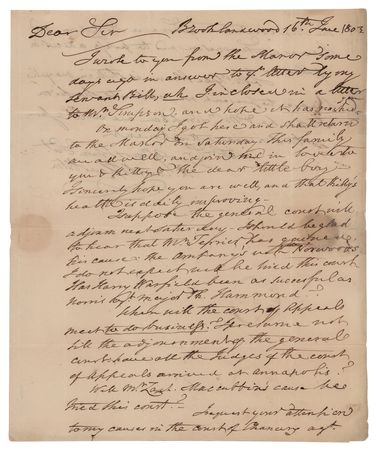 Dear Sir Brooklandwood 16th June 1803
I wrote to you from the Manor some
days ago in answer to yr letter by my
servant Bill, wh I inclosed in a letter
to Mr Simpson and hope it has reached
On monday I got here and shall return
to the Manor on Saturday. This family
are all well, and join me in love to
you & Kitty & the dear little boy: I
sincerely hope you are well, and that Kitty's
health is daily improving.
I suppose the general court will
adjourn next Saturday. I should be glad
to hear that Mr has gained
his cause: the Company's with
I do not expect will be tried this court
Has Harry Warfield been as successful as
Norris agt major Ch. Hammond?
When will the court of Appeals
meet to do business? I presume not
till the adjournment of the general
court: have all the Judges of the court
of Appeals arrived at Annapolis?
Will Mr Maccubbin's cause be
tried this court?
I request your attention
to my causes in the court of Chancery agt